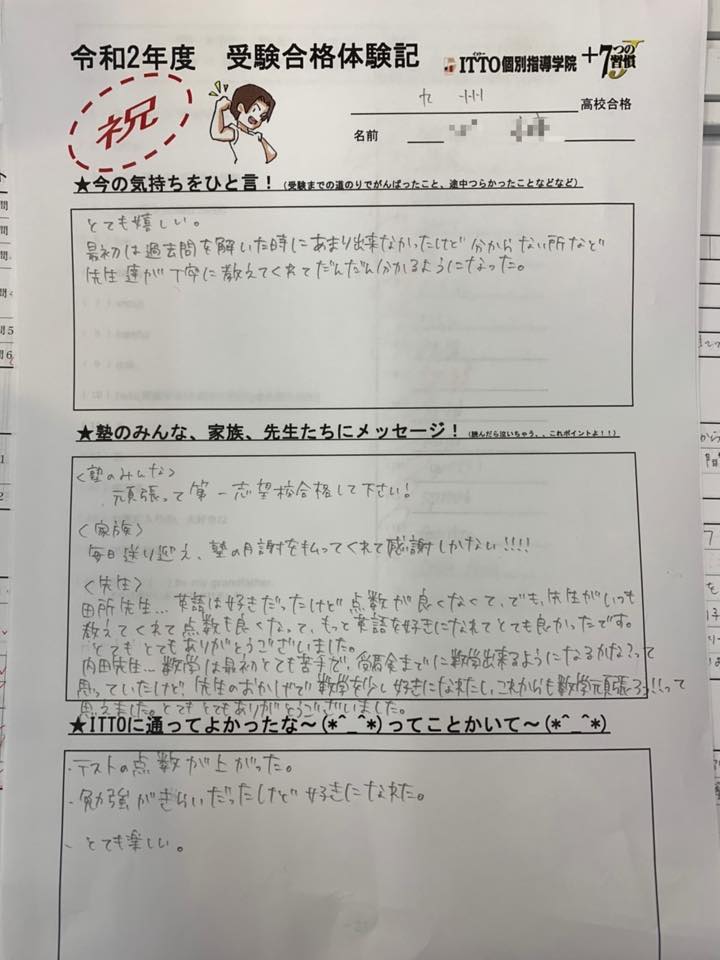 令和2年度 受験合格体験記 ITTO個別指導学院+7つの習慣J
祝
高校合格
名前
★今の気持ちをひと言！(受験までの道のりでがんばったこと、途中つらかったことなどなど)
とても嬉しい。
最初は過去問を解いた時にあまり出来なかったけど分からない所など
先生達が丁寧に教えてくれてだんだん分かるようになった。
★塾のみんな、家族、先生たちにメッセージ！(読んだら泣いちゃう、、これポイントよ！！)
<塾のみんな>
頑張って第一志望校合格して下さい!
<家族>
毎日送り迎え、塾の月謝を払ってくれて感謝しかない!!!!
<先生>
田所先生...英語は好きだったけど点数が良くなくて、でも、先生がいつも
教えてくれて点数も良くなって、もっと英語を好きになれてとても良かったです。
とてもとてもありがとうございました。
内田先生...数学は最初とても苦手で、受験までに数学出来るようになるかな?って
思っていたけど、先生のおかげで数学を少し好きになれたし、これからも数学頑張ろう!!って
思えました。とてもとてもありがとうございました。
★ITTOに通ってよかったな～(*^_^*)ってことかいて～(*^_^*)
・テストの点数が上がった。
・勉強がきらいだったけど好きになれた。
・とても楽しい。